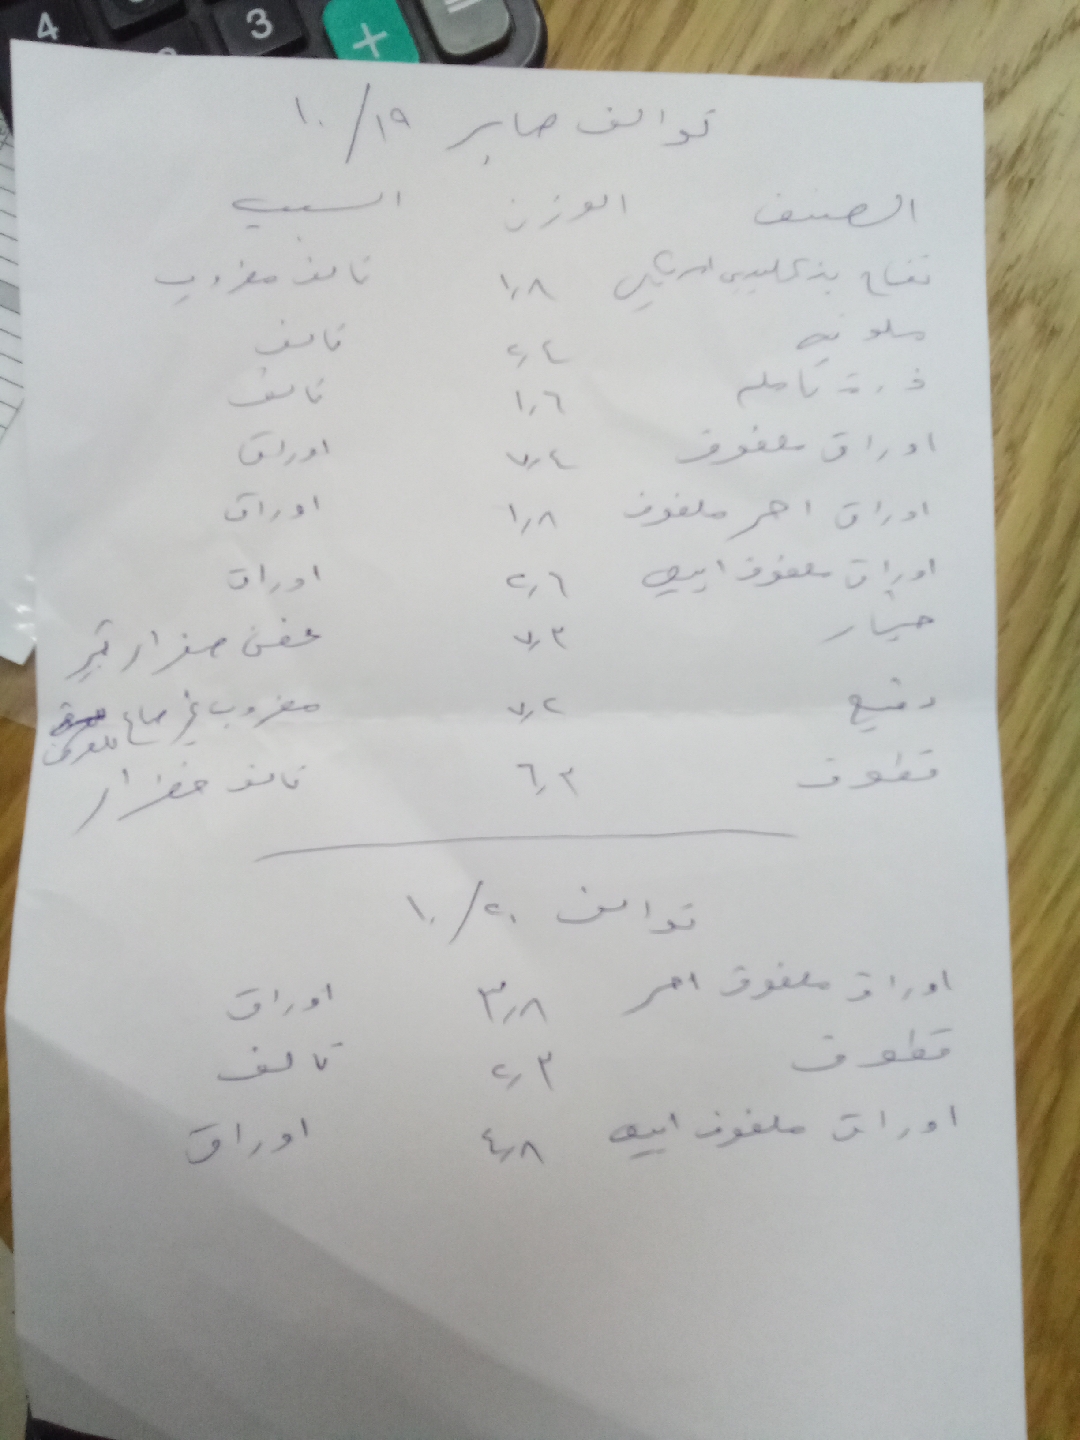 4
3
+
=
توالف صابر ١٩/١٠
الصنف الوزن السبب
تفاح ١,٨ تالف مضروب
ملونه ٢,٤ تالف
ذرة كامله ١,٦ تالف
اوراق ملفوف ٧,٤ اوراق
اوراق احمر ملفوف ١,٨ اوراق
اوراق ملفوف ابيض ٢,٦ اوراق
خيار ٧,٣ عفن صفار كبير
دقيع ٧,٢ مضروب غير صالح
قطوف ٦,٣ تالف خضرار
توالف ٢٠/١٠
اوراق ملفوف احمر ٣,٨ اوراق
قطوف ٢,٣ تالف
اوراق ملفوف ابيض ٤,٨ اوراق